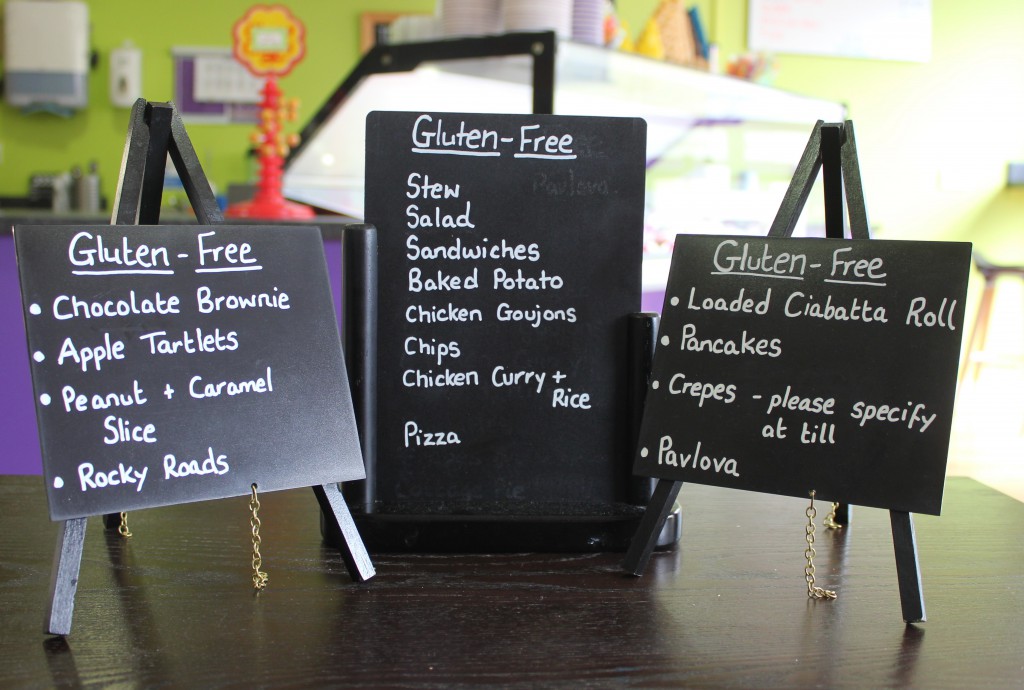 Gluten-Free
• Chocolate Brownie
• Apple Tartlets
• Peanut + Caramel
Slice
• Rocky Roads
Gluten-Free
Pavlova
Stew
Salad
Sandwiches
Baked Potato
Chicken Goujons
Chips
Chicken Curry +
Rice
Pizza
Pie
Gluten-Free
• Loaded Ciabatta Roll
• Pancakes
• Crepes - please specify
at till
• Pavlova